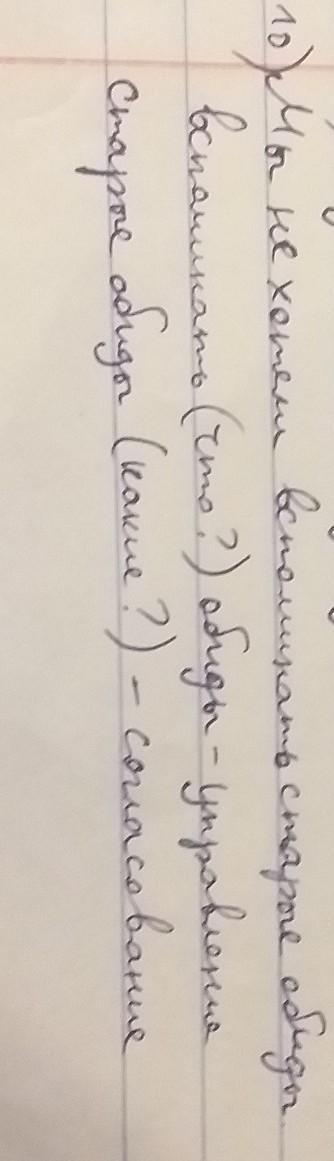 10) Мы не хотели вспоминать старые обиды.
вспоминать (что?) обиды - управление
старые обиды (какие?) - согласование